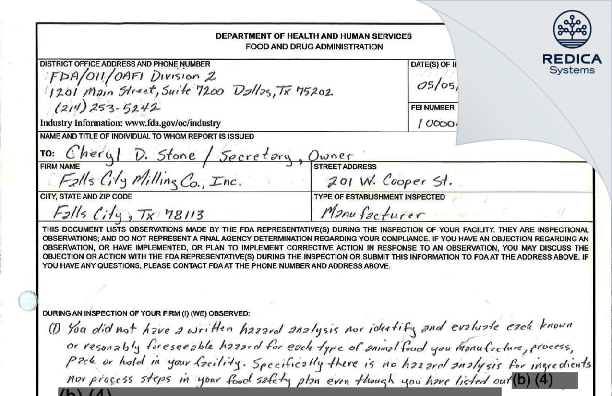 DEPARTMENT OF HEALTH AND HUMAN SERVICES
FOOD AND DRUG ADMINISTRATION
REDICA
Systems
DISTRICT OFFICE ADDRESS AND PHONE NUMBER
DATE(S) OF I
FDA/OII/OAFI Division 2
1201 Main Street, Suite 7200 Dallas, Tx 75202
05/05/
(214) 253-5242
FEI NUMBER
Industry Information: www.fda.gov/oc/industry
10000
NAME AND TITLE OF INDIVIDUAL TO WHOM REPORT IS ISSUED
TO: Cheryl D. Stone / Secretary, Owner
FIRM NAME
STREET ADDRESS
Falls City Milling Co., Inc.
201 W. Cooper St.
CITY, STATE AND ZIP CODE
TYPE OF ESTABLISHMENT INSPECTED
Falls City, Tx 78113
Manufacturer
THIS DOCUMENT LISTS OBSERVATIONS MADE BY THE FDA REPRESENTATIVE(S) DURING THE INSPECTION OF YOUR FACILITY. THEY ARE INSPECTIONAL
OBSERVATIONS; AND DO NOT REPRESENT A FINAL AGENCY DETERMINATION REGARDING YOUR COMPLIANCE. IF YOU HAVE AN OBJECTION REGARDING AN
OBSERVATION, OR HAVE IMPLEMENTED, OR PLAN TO IMPLEMENT CORRECTIVE ACTION IN RESPONSE TO AN OBSERVATION, YOU MAY DISCUSS THE
OBJECTION OR ACTION WITH THE FDA REPRESENTATIVE(S) DURING THE INSPECTION OR SUBMIT THIS INFORMATION TO FDA AT THE ADDRESS ABOVE. IF
YOU HAVE ANY QUESTIONS, PLEASE CONTACT FDA AT THE PHONE NUMBER AND ADDRESS ABOVE.
DURING AN INSPECTION OF YOUR FIRM (I) (WE) OBSERVED:
(1) You did not have a written hazard analysis nor identify and evaluate each known
or resonably foreseeable hazard for each type of animal food you manufacture, process,
pack or hold in your facility. Specifically there is no hazard analysis for ingredients
nor process steps in your food safety plan even though you have listed out (b) (4)
(b) (4)